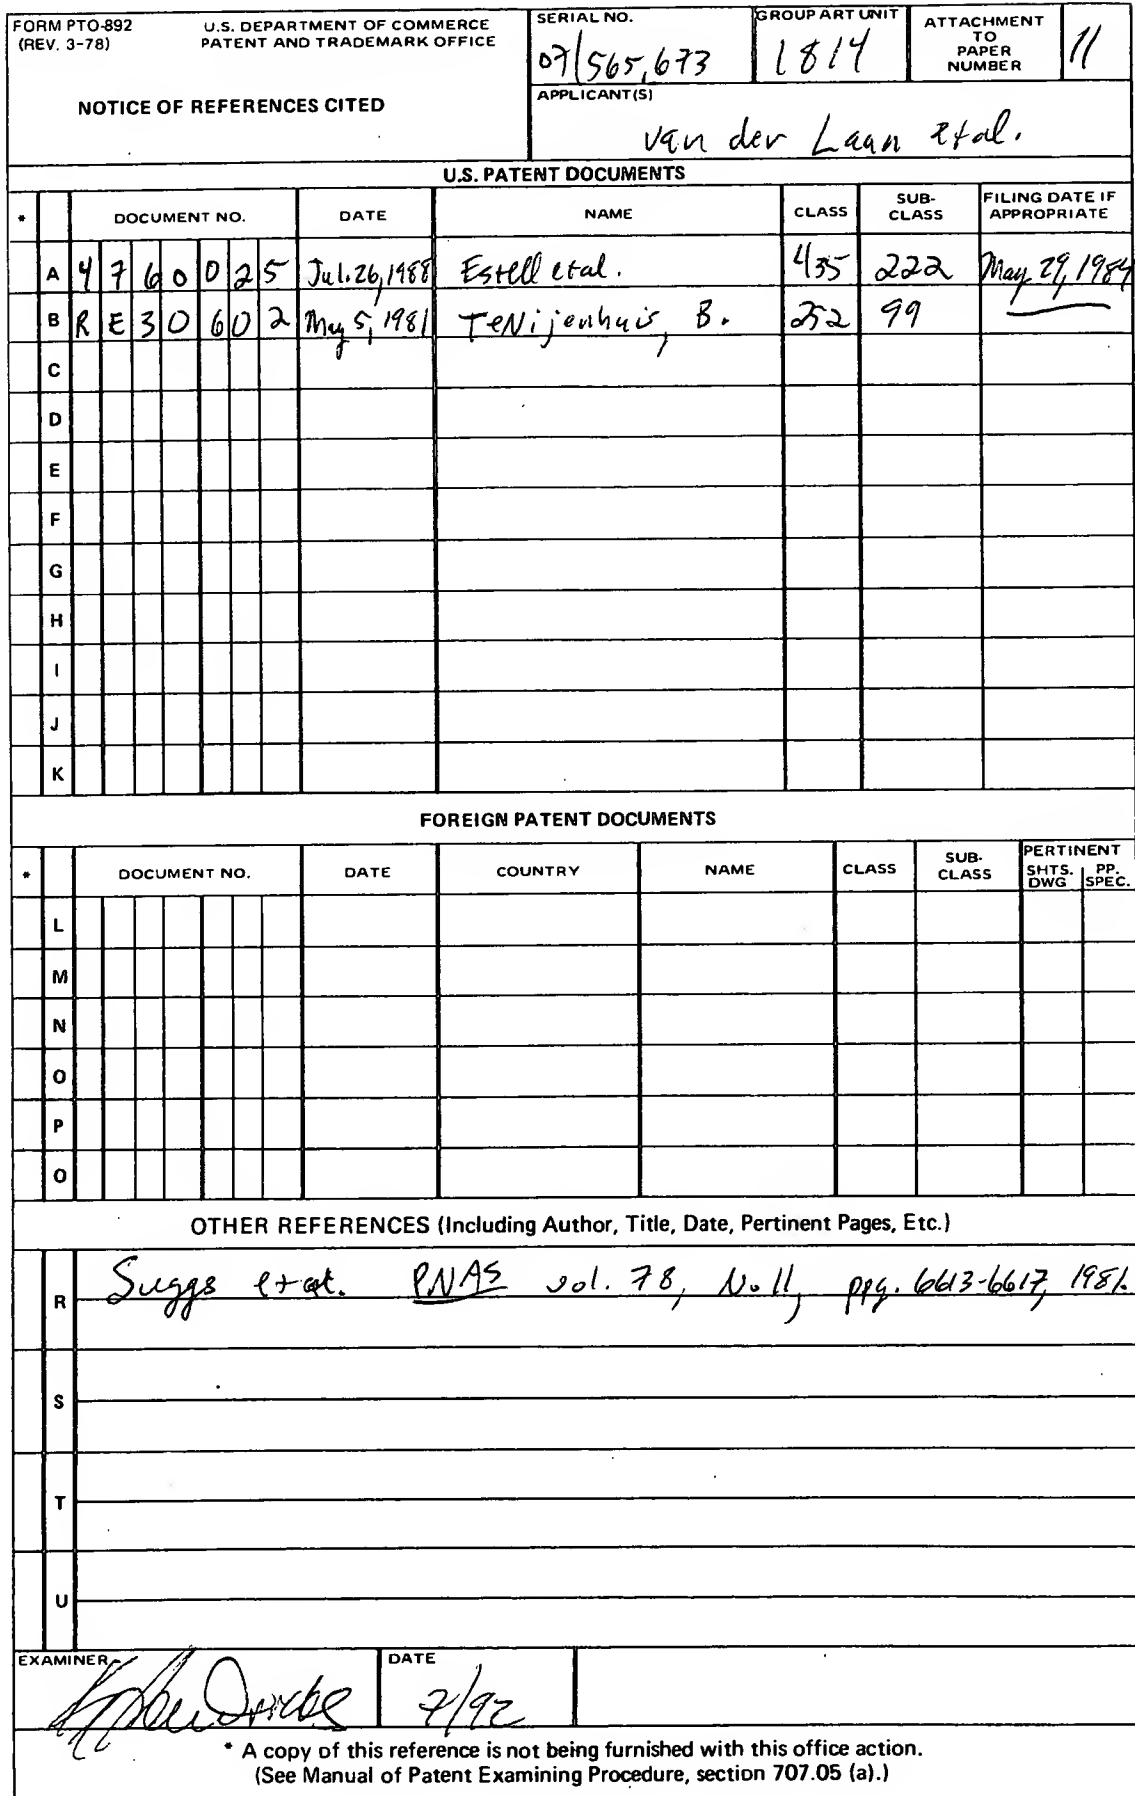 FORM PTO-892 U.S. DEPARTMENT OF COMMERCE
(REV. 3-78) PATENT AND TRADEMARK OFFICE
NOTICE OF REFERENCES CITED
SERIAL NO.
07/565,673
GROUP ART UNIT
1814
ATTACHMENT
TO
PAPER
NUMBER
11
APPLICANT(S)
van der Laan et al.
U.S. PATENT DOCUMENTS
* DOCUMENT NO. DATE NAME CLASS SUB-CLASS FILING DATE IF APPROPRIATE
A 4760025 Jul. 26, 1988 Estell et al. 435 222 May 29, 1984
B RE30602 May 5, 1981 TeNijenhuis, B. 252 99
C
D
E
F
G
H
I
J
K
FOREIGN PATENT DOCUMENTS
* DOCUMENT NO. DATE COUNTRY NAME CLASS SUB-CLASS PERTINENT SHTS. DWG PP. SPEC.
L
M
N
O
P
Q
OTHER REFERENCES (Including Author, Title, Date, Pertinent Pages, Etc.)
R Suggs et al. PNAS vol. 78, No. 11, ppg. 6613-6617, 1981.
S
T
U
EXAMINER
DATE
7/92
* A copy of this reference is not being furnished with this office action.
(See Manual of Patent Examining Procedure, section 707.05 (a).)